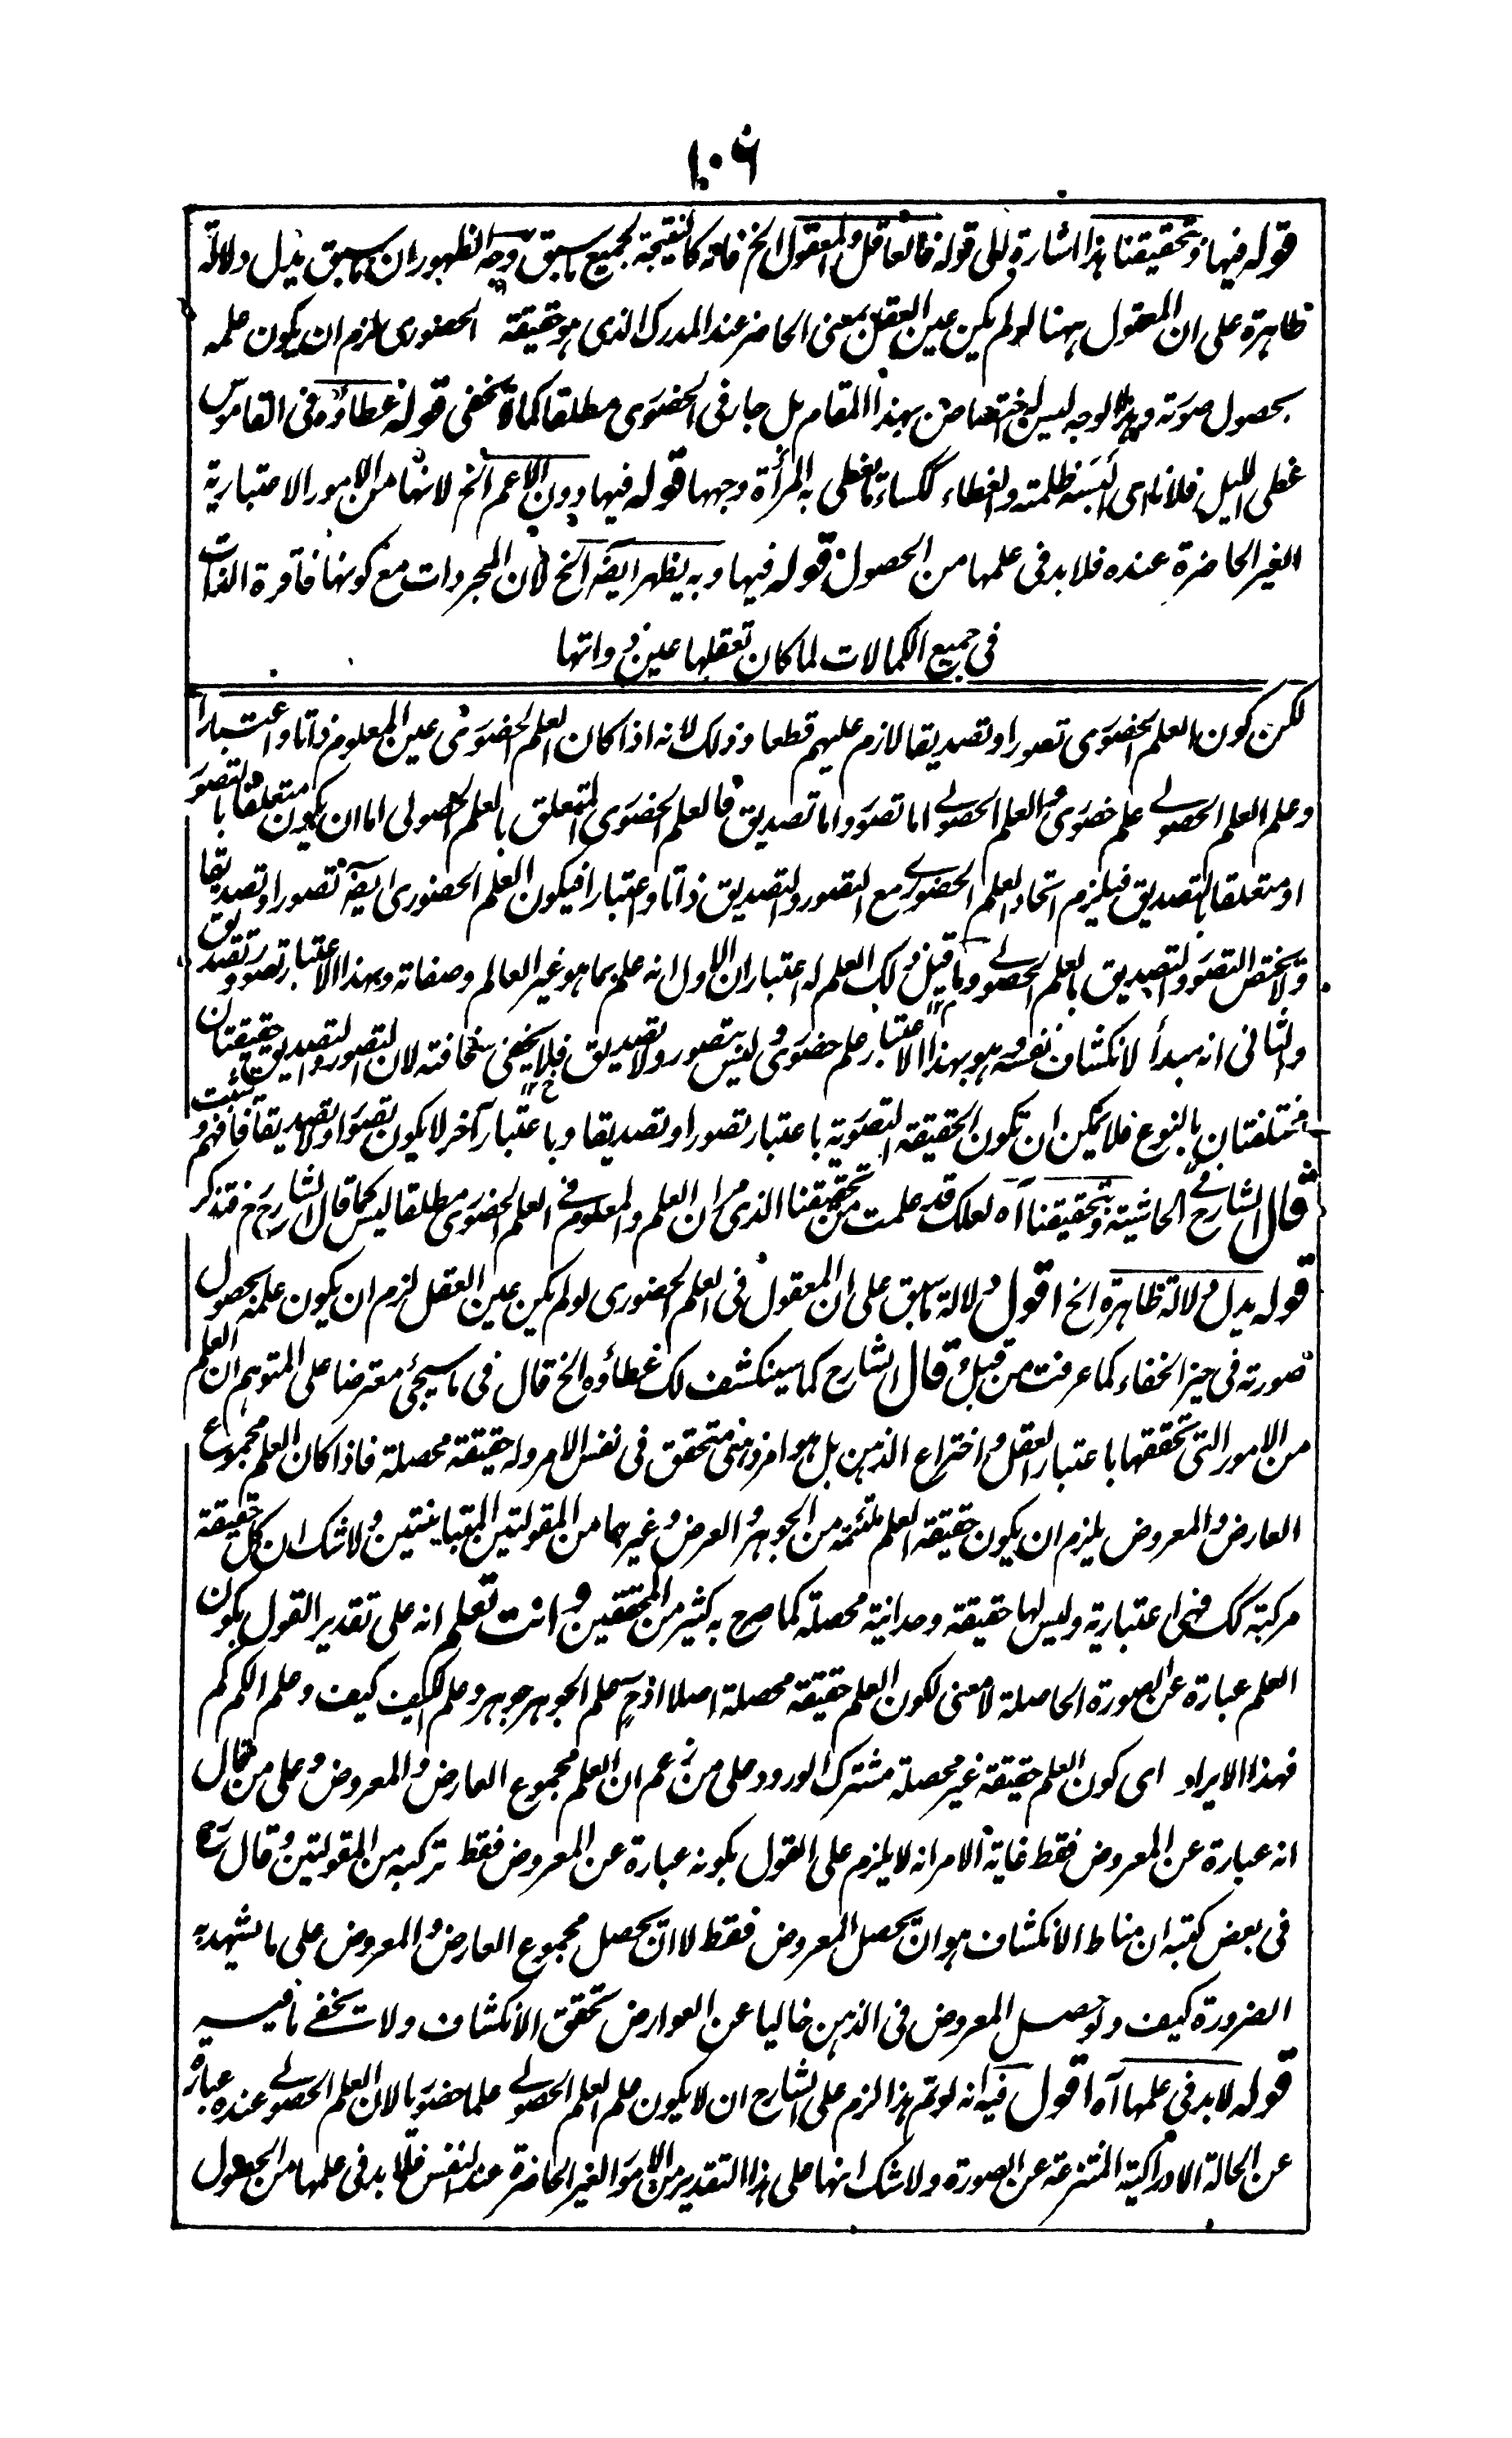 ١٠٦
قوله فيها وتحقيقنا هذا اشارة الى قوله فالعاقل والمعقول الخ فانه كالنتيجة لجميع ما سبق وجه الظهور ان ما سبق يدل دلالة
ظاهرة على ان المعقول ههنا لو لم يكن عين العقل بمعنى الحاضر عند المدرك الذى هو حقيقة الحضورى لزم ان يكون علمه
بحصول صورته وهذا الوجه ليس له اختصاص بهذا المقام بل جار فى الحضورى مطلقا كما لا يخفى قوله غطاؤه فى القاموس
غطى الليل فلانا اى البسه ظلمته والغطاء ككساء ما تغطى به المرأة وجهها قوله فيها دون الاعم الخ لانها من الامور الاعتبارية
الغير الحاضرة عنده فلا بد فى علمها من الحصول قوله فيها وبه يظهر ايضا الخ لان المجردات مع كونها فاقرة الذات
فى جميع الكمالات لما كان تعقلها عين ذواتها
لكن كون العلم الحضورى تصورا وتصديقا لازم عليهم قطعا وذلك لانه اذا كان العلم الحضورى عين المعلوم ذاتا واعتبارا
وعلم العلم الحصولى علم حضورى والعلم الحصولى اما تصور واما تصديق فالعلم الحضورى المتعلق بالعلم الحصولى اما ان يكون متعلقا بالتصور
او متعلقا بالتصديق فيلزم اتحاد العلم الحضورى مع التصور والتصديق ذاتا واعتبارا فيكون العلم الحضورى ايضا تصورا وتصديقا
ولا يختص التصور والتصديق بالعلم الحصولى وما قيل ذلك العلم له اعتباران الاول انه علم بما هو غير العالم وصفاته وبهذا الاعتبار تصور وتصديق
والثانى انه مبدأ لانكشاف نفسه وهو بهذا الاعتبار علم حضورى وليس بتصور ولا تصديق فلا يخفى سخافته لان التصور والتصديق حقيقتان
مختلفتان بالنوع فلا يمكن ان تكون الحقيقة التصورية باعتبار تصورا وتصديقا وباعتبار آخر لا يكون تصورا ولا تصديقا فافهم وتثبت
قال الشارح فى الحاشية وتحقيقنا آه لعلك قد علمت من تحقيقنا الذى مر ان العلم والمعلوم فى العلم الحضورى مطلقا ليس كما قال الشارح فتذكر
قوله يدل دلالة ظاهرة الخ اقول دلالة ما سبق على ان المعقول فى العلم الحضورى لو لم يكن عين العقل لزم ان يكون علمه بحصول
صورته فى حيز الخفاء كما عرفت من قبل وقال الشارح كما سينكشف لك غطاؤه الخ قال فى ما سيجئ معترضا على المتوهم ان العلم
من الامور التى تحققها باعتبار العقل واختراع الذهن بل هو امر ذهنى متحقق فى نفس الامر وله حقيقة محصلة فاذا كان العلم مجموع
العارض والمعروض يلزم ان يكون حقيقة العلم ملتئمة من الجوهر والعرض وغيرهما من المقولتين المتباينتين ولا شك ان كل حقيقة
مركبة كك فهى اعتبارية وليس لها حقيقة وحدانية محصلة كما صرح به كثير من المحققين وانت تعلم انه على تقدير القول بكون
العلم عبارة عن الصورة الحاصلة لا معنى لكون العلم حقيقة محصلة اصلا اذ ح علم الجوهر جوهر وعلم الكيف كيف وعلم الكم كم
فهذا الايراد اى كون العلم حقيقة غير محصلة مشترك الورود على من زعم ان العلم مجموع العارض والمعروض وعلى من قال
انه عبارة عن المعروض فقط غاية الامر انه لا يلزم على القول بكونه عبارة عن المعروض فقط تركبه من المقولتين وقال
فى بعض كتبه ان مناط الانكشاف هو ان يحصل المعروض فقط لا ان يحصل مجموع العارض والمعروض على ما تشهد به
الضرورة كيف ولو حصل المعروض فى الذهن خاليا عن العوارض تحقق الانكشاف ولا يخفى ما فيه
قوله لا بد فى علمها آه اقول فيه انه لو تم هذا لزم على الشارح ان لا يكون علم العلم الحصولى علما حضوريا لان العلم الحصولى عنده عبارة
عن الحالة الادراكية المنتزعة عن الصورة ولا شك انها على هذا التقدير من الامور الغير الحاضرة عند النفس فلا بد فى علمها من الحصول